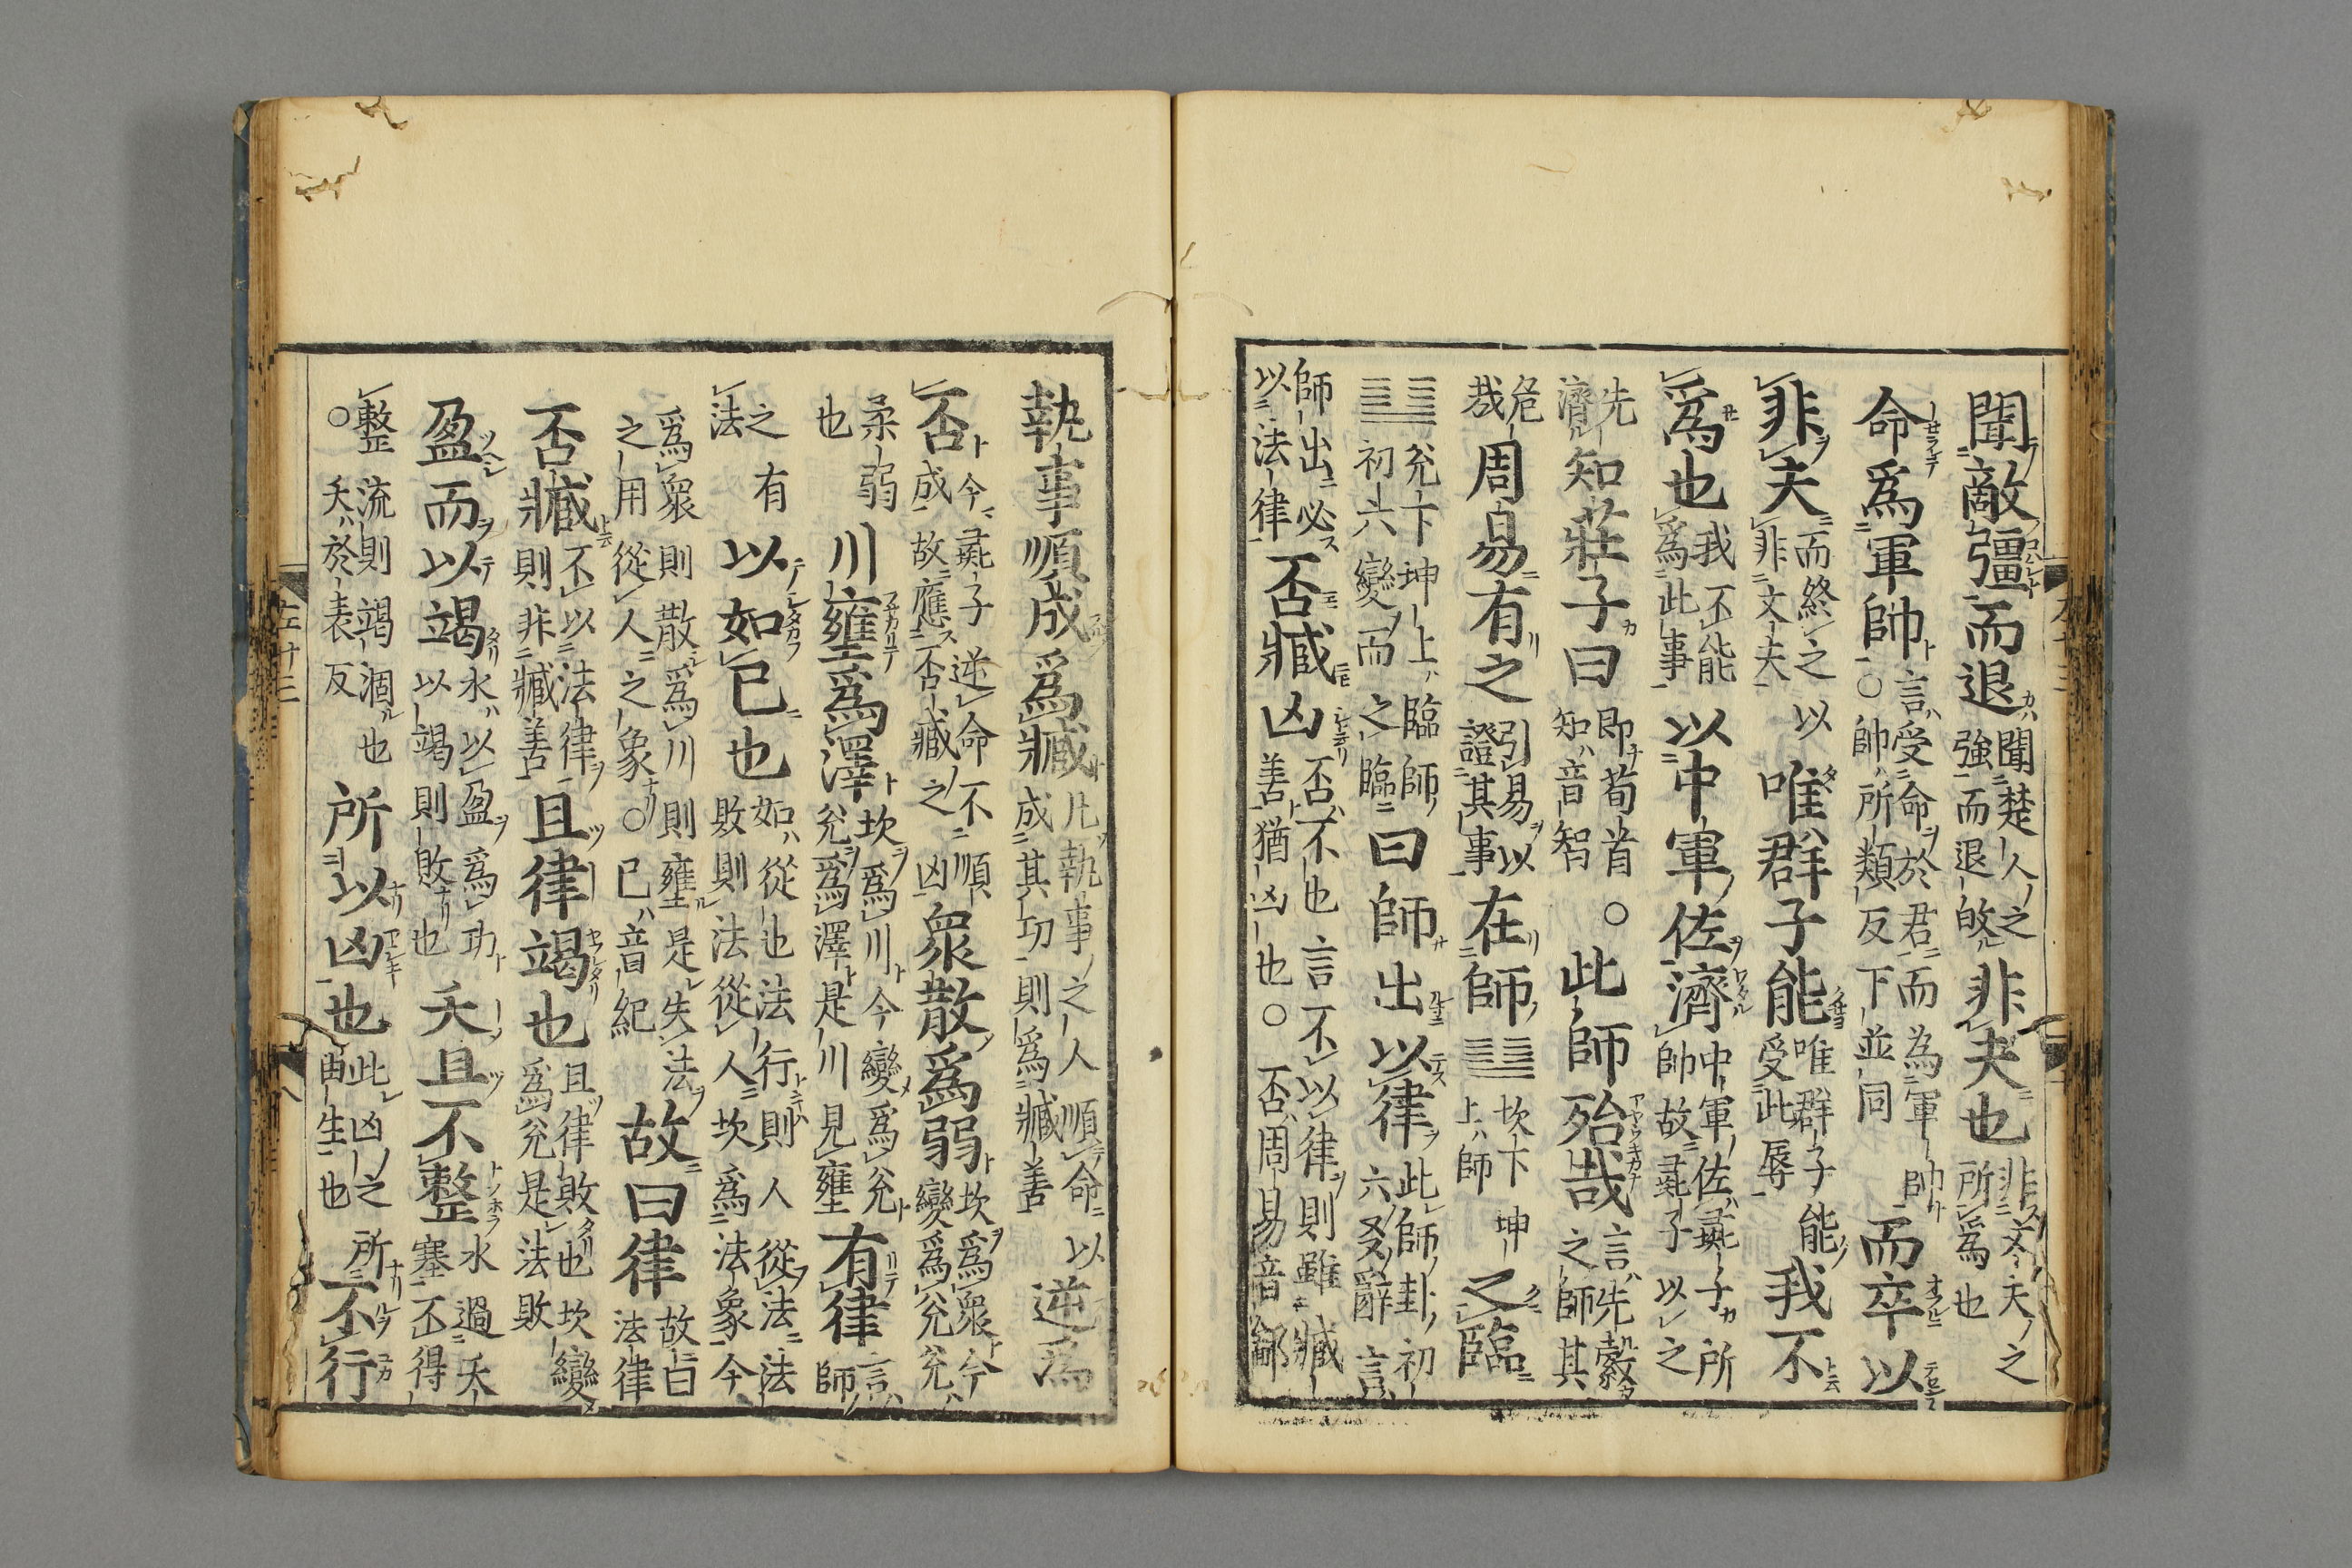 聞敵彊而退聞楚人之強而退啟非夫也非丈夫之所爲也
命爲軍帥言受命於君而為軍帥○帥所類反下並同而卒以
非夫而終之以非丈夫唯群子能唯群子能受此辱我不
爲也我不能爲此事以中軍佐濟中軍佐彘子所帥故彘子以之
先濟知莊子曰即荀首○知音智此師殆哉言先縠之師其
危哉周易有之引易以證其事在師䷆坎下坤上師之臨
䷒兊下坤上臨師初六變而之臨曰師出以律此師卦初六爻辭言
師出必以法律否臧凶否不也言不以律則雖臧善猶凶也○否周易音鄙
執事順成爲臧凡執事之人順命以成其功則爲臧善逆爲
否今彘子逆命不順成故應否臧之凶衆散爲弱坎爲衆今變爲兊兊
柔弱也川壅爲澤坎爲川今變爲兊兊爲澤是川見壅有律言師
之有法以如已也如從也法行則人從法法敗則法從人坎爲法象今
爲衆則散爲川則壅是失法之用從人之象○已音紀故曰律故曰法律
否臧不以法律則非臧善且律竭也且律敗也坎變爲兊是法敗
盈而以竭水以盈爲功以竭則敗也夭且不整水遇夭塞不得
整流則竭涸也○夭於表反所以凶也此凶之所由生也不行
左十三
八